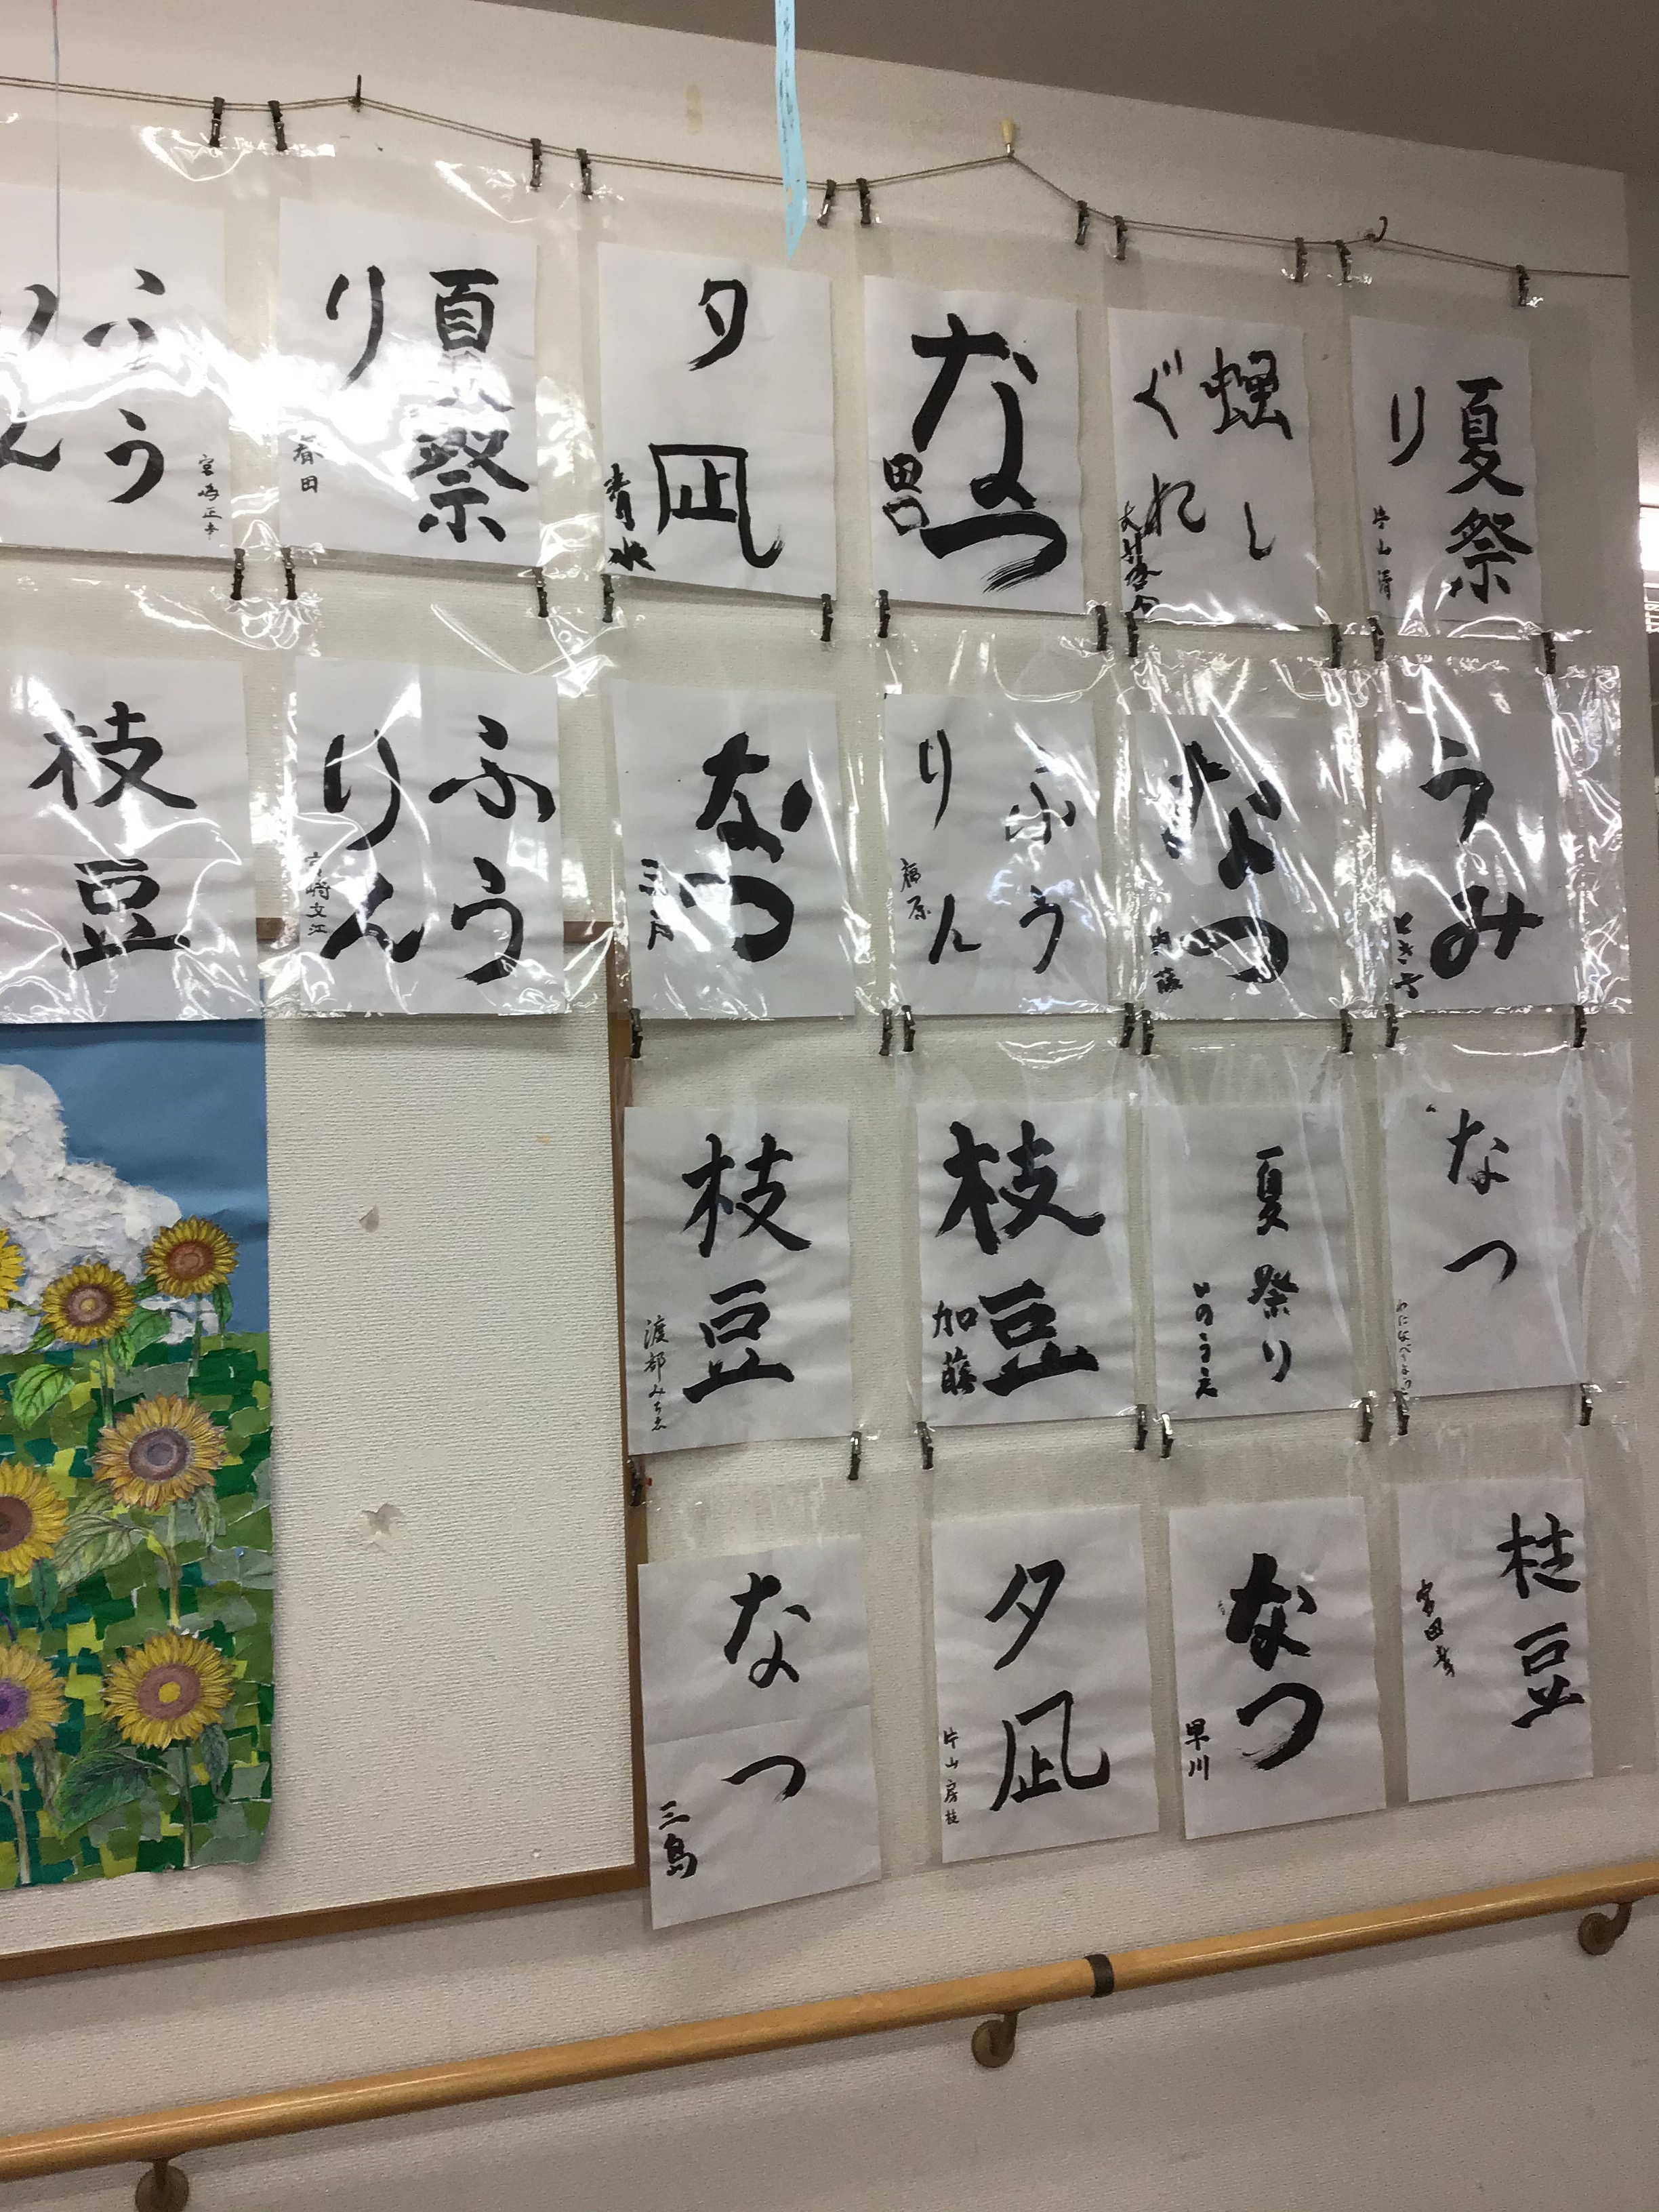 ふうりん
宮嶋正幸
夏祭り
春田
夕凪
青水
なつ
田口
蝉しぐれ
夏祭り
片山清
枝豆
ふうりん
宮崎文江
なつ
ふうりん
福原
なつ
内藤
うみ
枝豆
渡部みちゑ
枝豆
加藤
夏祭り
いのうえ
なつ
なつ
三島
夕凪
片山房枝
なつ
早川
枝豆